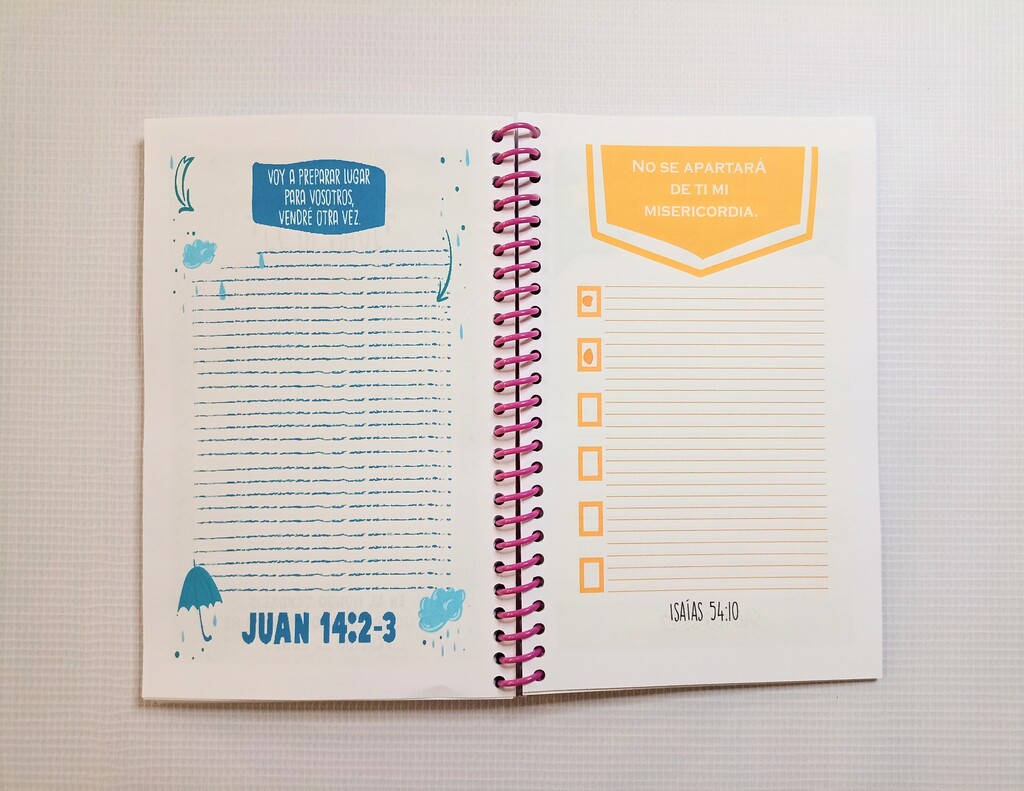 VOY A PREPARAR LUGAR
PARA VOSOTROS,
VENDRÉ OTRA VEZ.
JUAN 14:2-3
NO SE APARTARÁ
DE TI MI
MISERICORDIA.
ISAÍAS 54:10